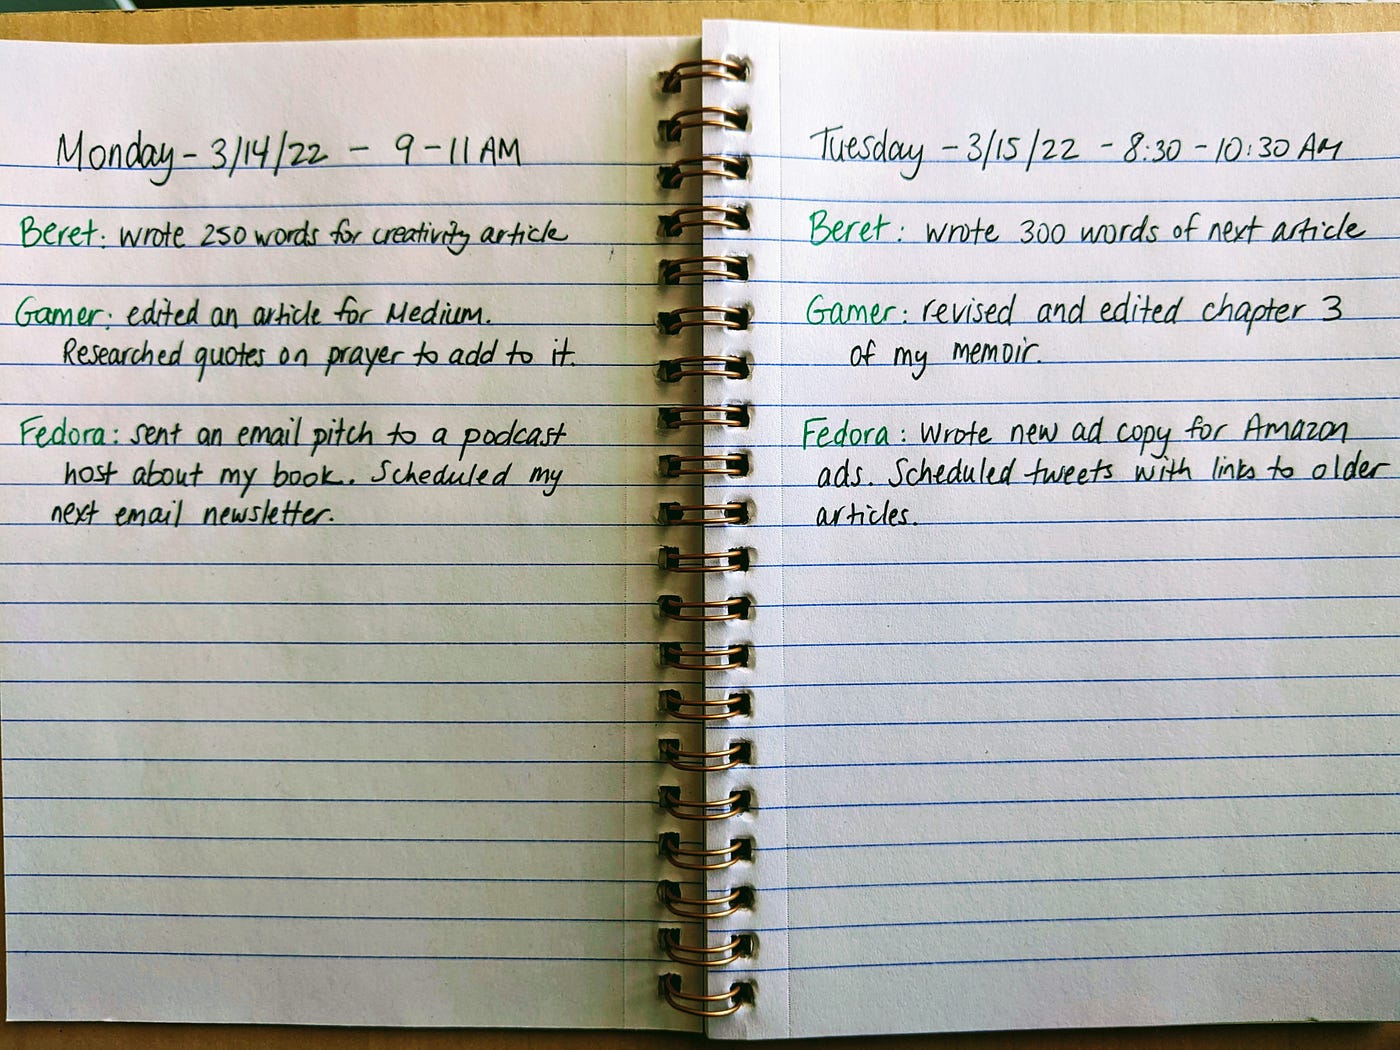 Monday - 3/14/22 - 9 - 11 AM
Beret: wrote 250 words for creativity article
Gamer: edited an article for Medium.
Researched quotes on prayer to add to it.
Fedora: sent an email pitch to a podcast
host about my book. Scheduled my
next email newsletter.
Tuesday - 3/15/22 - 8:30 - 10:30 AM
Beret: wrote 300 words of next article
Gamer: revised and edited chapter 3
of my memoir.
Fedora: Wrote new ad copy for Amazon
ads. Scheduled tweets with links to older
articles.